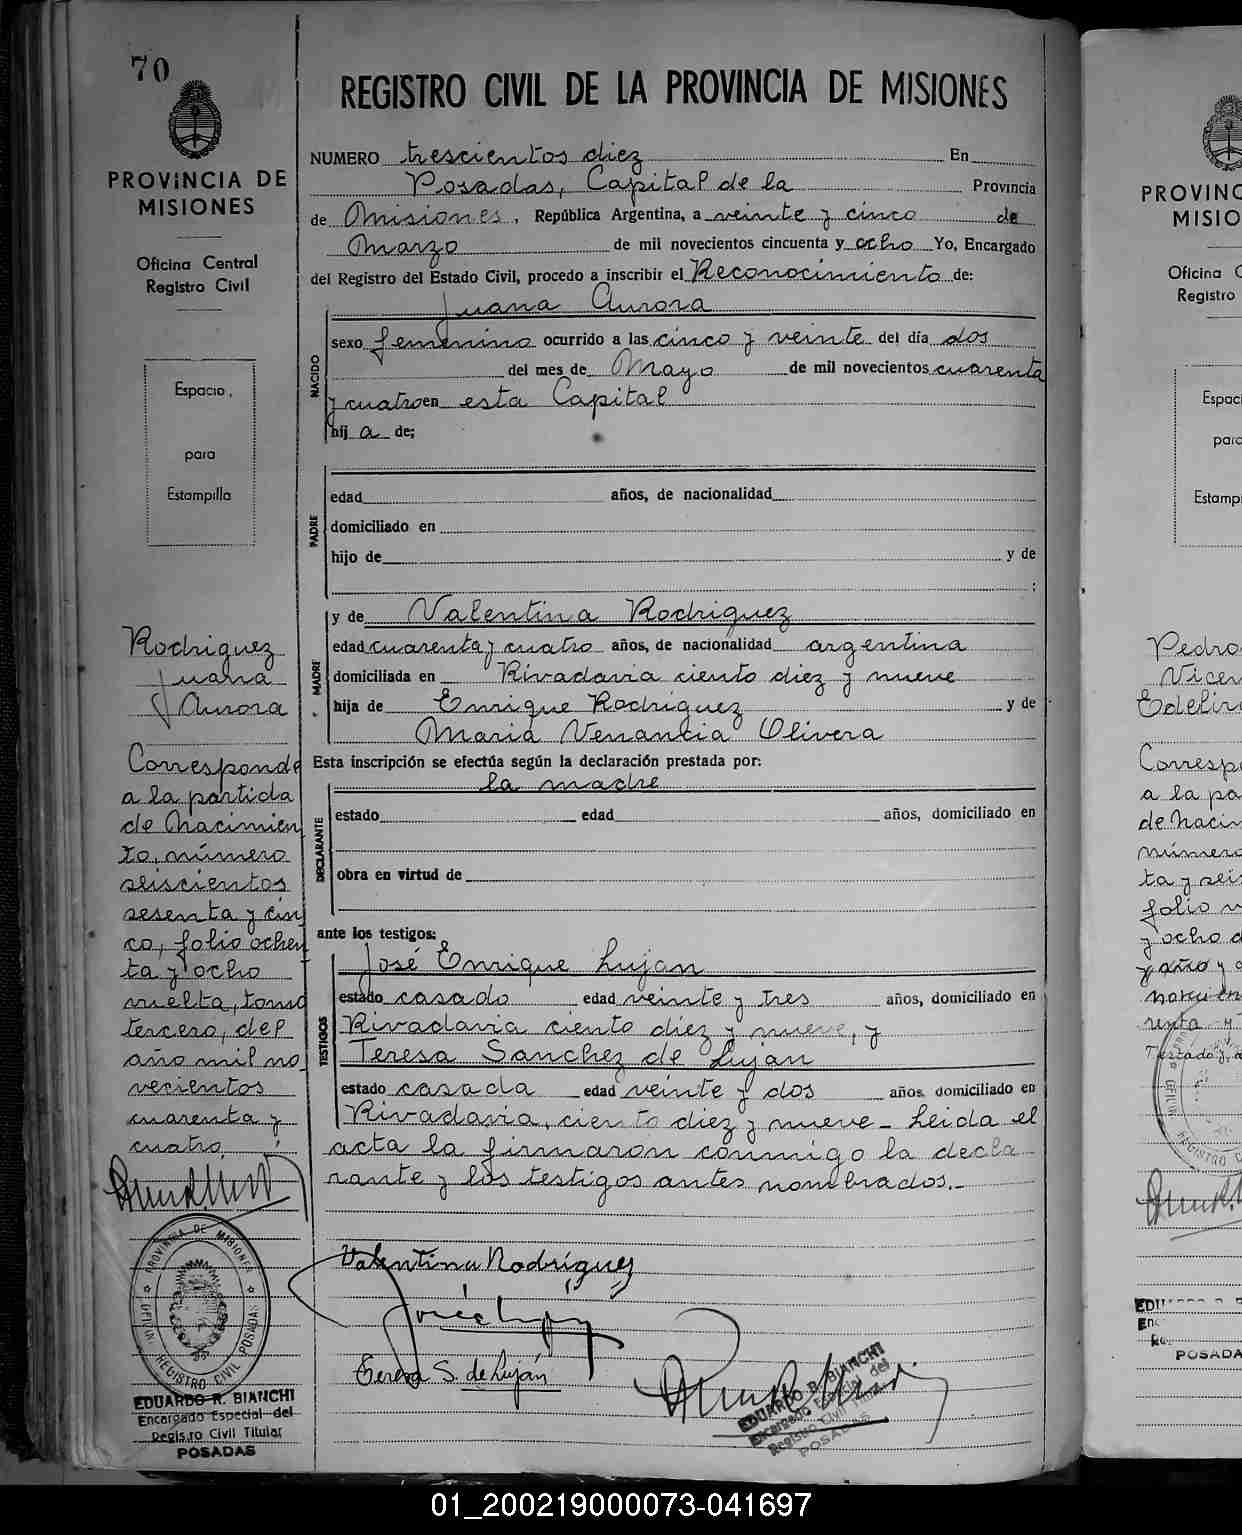 70
PROVINCIA DE
MISIONES
Oficina Central
Registro Civil
Espacio
para
Estampilla
Rodriguez
Juana
Aurora
Corresponde
a la partida
de Nacimien
to, número
seiscientos
sesenta y cin
co, folio ochen
ta y ocho
vuelta, tomo
tercero, del
año mil no
vecientos
cuarenta y
cuatro.
PROVINCIA DE MISIONES
REGISTRO CIVIL POSADAS
EDUARDO R. BIANCHI
Encargado Especial del
Registro Civil Titular
POSADAS
REGISTRO CIVIL DE LA PROVINCIA DE MISIONES
NUMERO trescientos diez En
Posadas, Capital de la Provincia
de Misiones, República Argentina, a veinte y cinco de
Marzo de mil novecientos cincuenta y ocho Yo, Encargado
del Registro del Estado Civil, procedo a inscribir el Reconocimiento de:
Juana Aurora
NACIDO
sexo femenino ocurrido a las cinco y veinte del día dos
del mes de Mayo de mil novecientos cuarenta
y cuatro en esta Capital
hij a de;
PADRE
edad años, de nacionalidad
domiciliado en
hijo de y de
;
MADRE
y de Valentina Rodriguez
edad cuarenta y cuatro años, de nacionalidad argentina
domiciliada en Rivadavia ciento diez y nueve
hija de Enrique Rodriguez y de
Maria Venancia Olivera
Esta inscripción se efectúa según la declaración prestada por:
la madre
DECLARANTE
estado edad años, domiciliado en
obra en virtud de
ante los testigos:
José Enrique Lujan
TESTIGOS
estado casado edad veinte y tres años, domiciliado en
Rivadavia ciento diez y nueve, y
Teresa Sanchez de Lujan
estado casada edad veinte y dos años, domiciliado en
Rivadavia, ciento diez y nueve - Leida el
acta la firmaron conmigo la decla
rante y los testigos antes nombrados.-
Valentina Rodríguez
José Luján
Teresa S. de Luján
EDUARDO R. BIANCHI
Encargado Especial del
Registro Civil Titular
POSADAS
PROVINC
MISIO
Oficina C
Registro
Espaci
para
Estamp
Pedro
Vicen
Corresp
a la pa
de Nacim
número
ta y seis
folio v
y ocho
REGISTRO C
POSADA
01_200219000073-041697